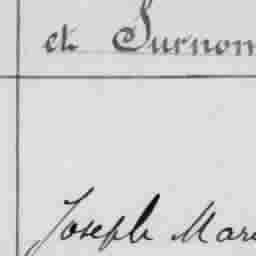 et Surnom
Joseph Mar